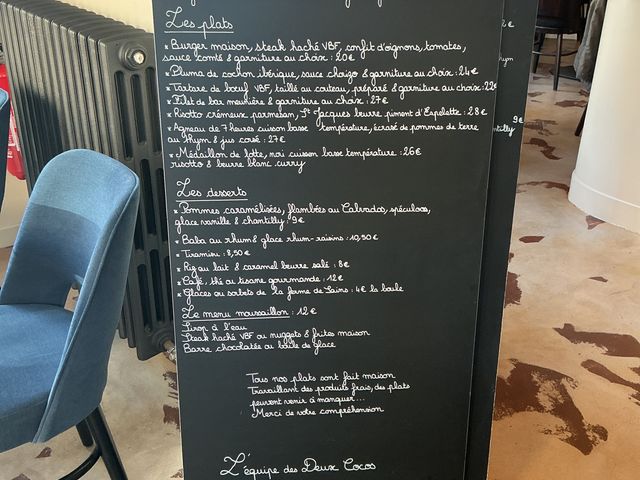 Les plats
* Burger maison, steak haché VBF, confit d'oignons, tomates,
sauce comté & garniture au choix : 20€
* Pluma de cochon ibérique, sauce chorizo & garniture au choix : 24€
* Tartare de bœuf VBF, taillé au couteau, préparé & garniture au choix : 22€
* Filet de bar meunière & garniture au choix : 27€
* Risotto crémeux parmesan, St Jacques beurre piment d'Espelette : 28 €
* Agneau de 7 heures cuisson basse température, écrasé de pommes de terre
au thym & jus corsé : 27€
* Médaillon de lotte, nori cuisson basse température : 26€
risotto & beurre blanc curry
Les desserts
* Pommes caramélisées, flambées au Calvados, spéculoos,
glace vanille & chantilly : 9€
* Baba au rhum & glace rhum-raisins : 10,50€
* Tiramisu : 8,50€
* Riz au lait & caramel beurre salé : 8€
* Café, thé ou tisane gourmande : 12€
* Glaces ou sorbets de la ferme de Sains : 4€ la boule
Le menu moussaillon : 12€
Sirop à l'eau
Steak haché VBF ou nuggets & frites maison
Barre chocolatée ou boule de glace
Tous nos plats sont fait maison
Travaillant des produits frais, des plats
peuvent venir à manquer...
Merci de votre compréhension
L'équipe des Deux Cocos
9€